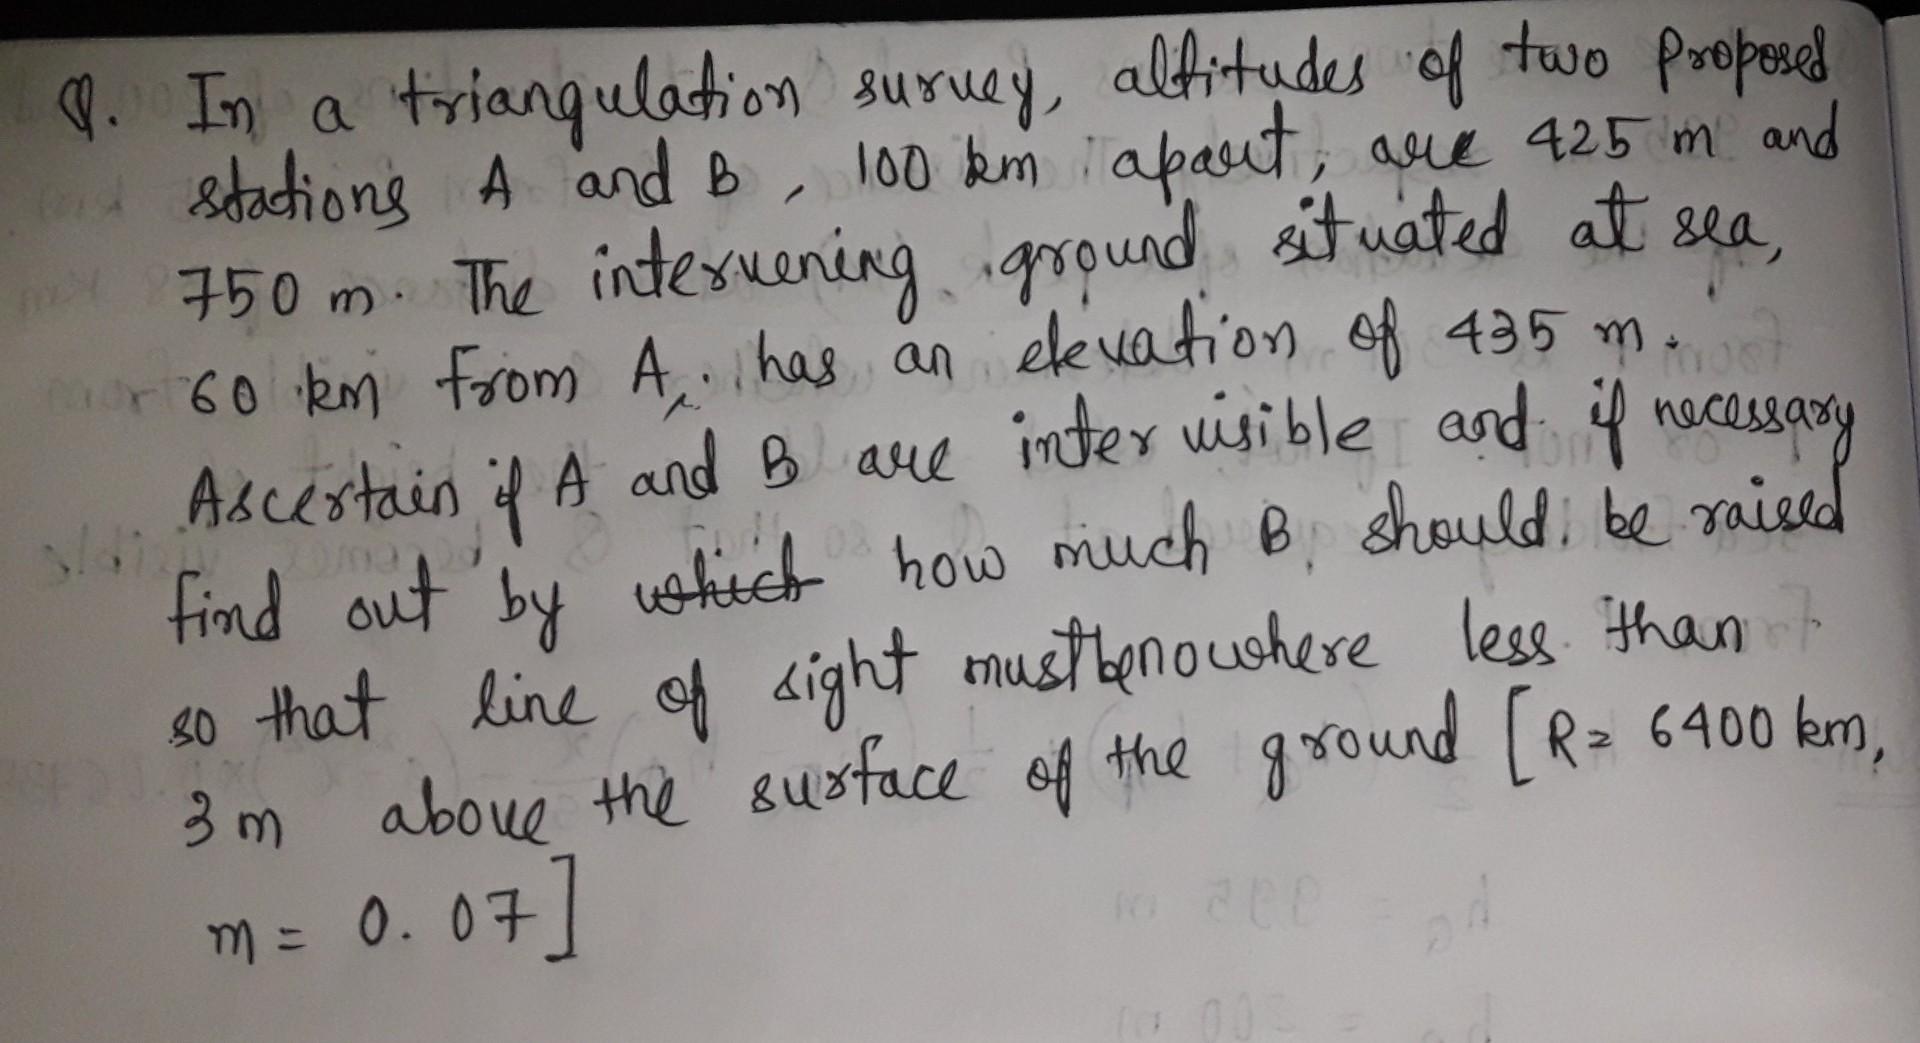 Q. In a triangulation survey, altitudes of two proposed
stations A and B, 100 km apart, are 425 m and
750 m. The intervening ground situated at sea,
60 km from A, has an elevation of 435 m.
Ascertain if A and B are inter visible and if necessary
find out by which how much B should be raised
so that line of sight must be nowhere less than
3 m above the surface of the ground [R = 6400 km,
m = 0.07]